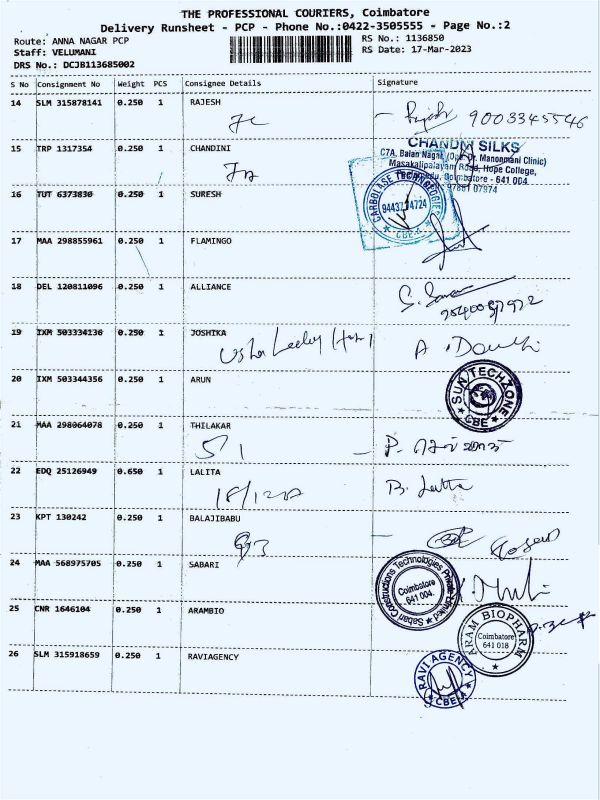 THE PROFESSIONAL COURIERS, Coimbatore
Delivery Runsheet - PCP - Phone No.:0422-3505555 - Page No.:2
Route: ANNA NAGAR PCP RS No.: 1136850
Staff: VELUMANI RS Date: 17-Mar-2023
DRS No.: DCJB113685002
S No Consignment No Weight PCS Consignee Details Signature
14 SLM 315878141 0.250 1 RAJESH
9003345546
15 TRP 1317354 0.250 1 CHANDINI
CHANDNI SILKS
C7A, Balan Nagar, (Opp Dr. Manonmani Clinic)
Masakalipalayam Road, Hope College,
Coimbatore - 641 004.
97881 07974
16 TUT 6373830 0.250 1 SURESH
CARBOLASE TECHNOLOGIES
CBE-4
17 MAA 298855961 0.250 1 FLAMINGO
18 DEL 120811096 0.250 1 ALLIANCE
19 IXM 503334136 0.250 1 JOSHIKA
20 IXM 503344356 0.250 1 ARUN
SUN TECHZONE
CBE
21 MAA 298064078 0.250 1 THILAKAR
51
22 EDQ 25126949 0.650 1 LALITA
B. Latta
23 KPT 130242 0.250 1 BALAJIBABU
24 MAA 568975705 0.250 1 SABARI
Sabari Constructions Technologies Private Limited
Coimbatore
641 004.
25 CNR 1646104 0.250 1 ARAMBIO
ARAM BIOPHARM
Coimbatore
641 018
26 SLM 315918659 0.250 1 RAVIAGENCY
RAVI AGENCY
CBE-4